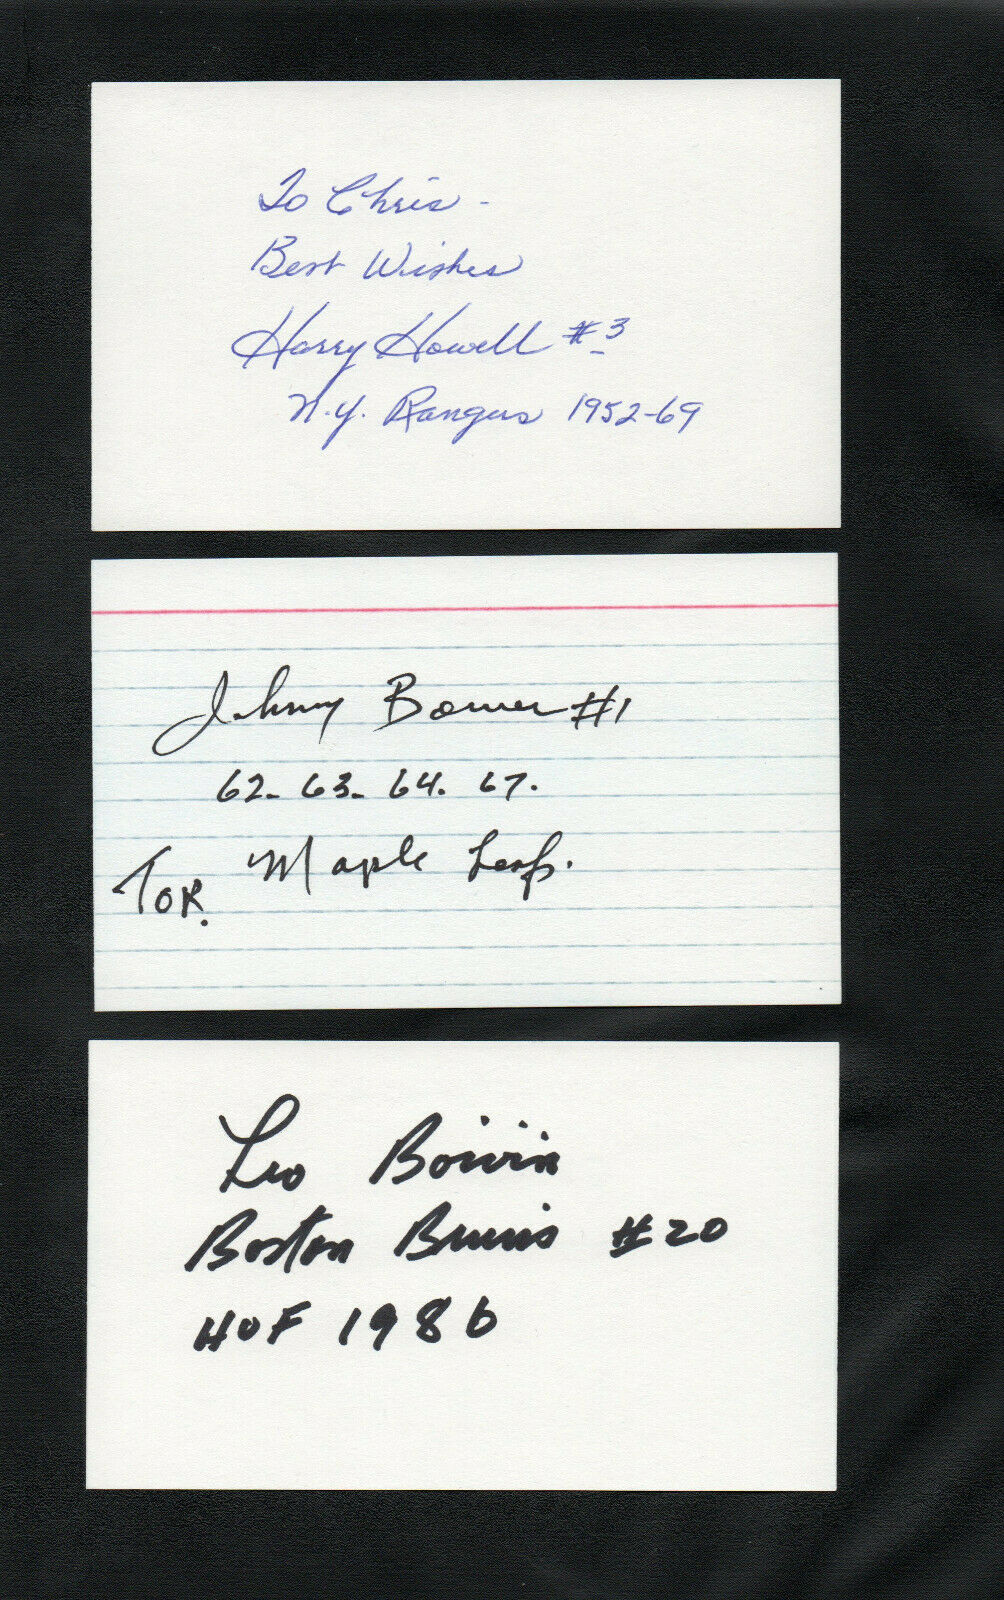 To Chris -
Best Wishes
Harry Howell #3
N.Y. Rangers 1952-69
Johnny Bower #1
62. 63. 64. 67.
Tor. Maple Leafs.
Leo Boivin
Boston Bruins #20
HOF 1986